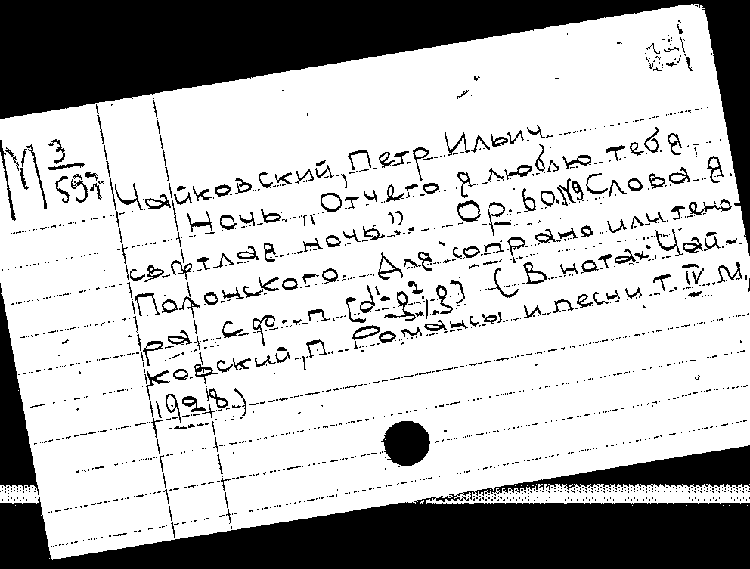 М 3/597
Чайковский, Петр Ильич
Ночь. „Отчего я люблю тебя,
светлая ночь?". Op. 60 №9 Слова Я.
Полонского. Для сопрано или тено-
ра с ф.-п (В нотах: Чай-
ковский, П. Романсы и песни Т. IV М.,
1928.)